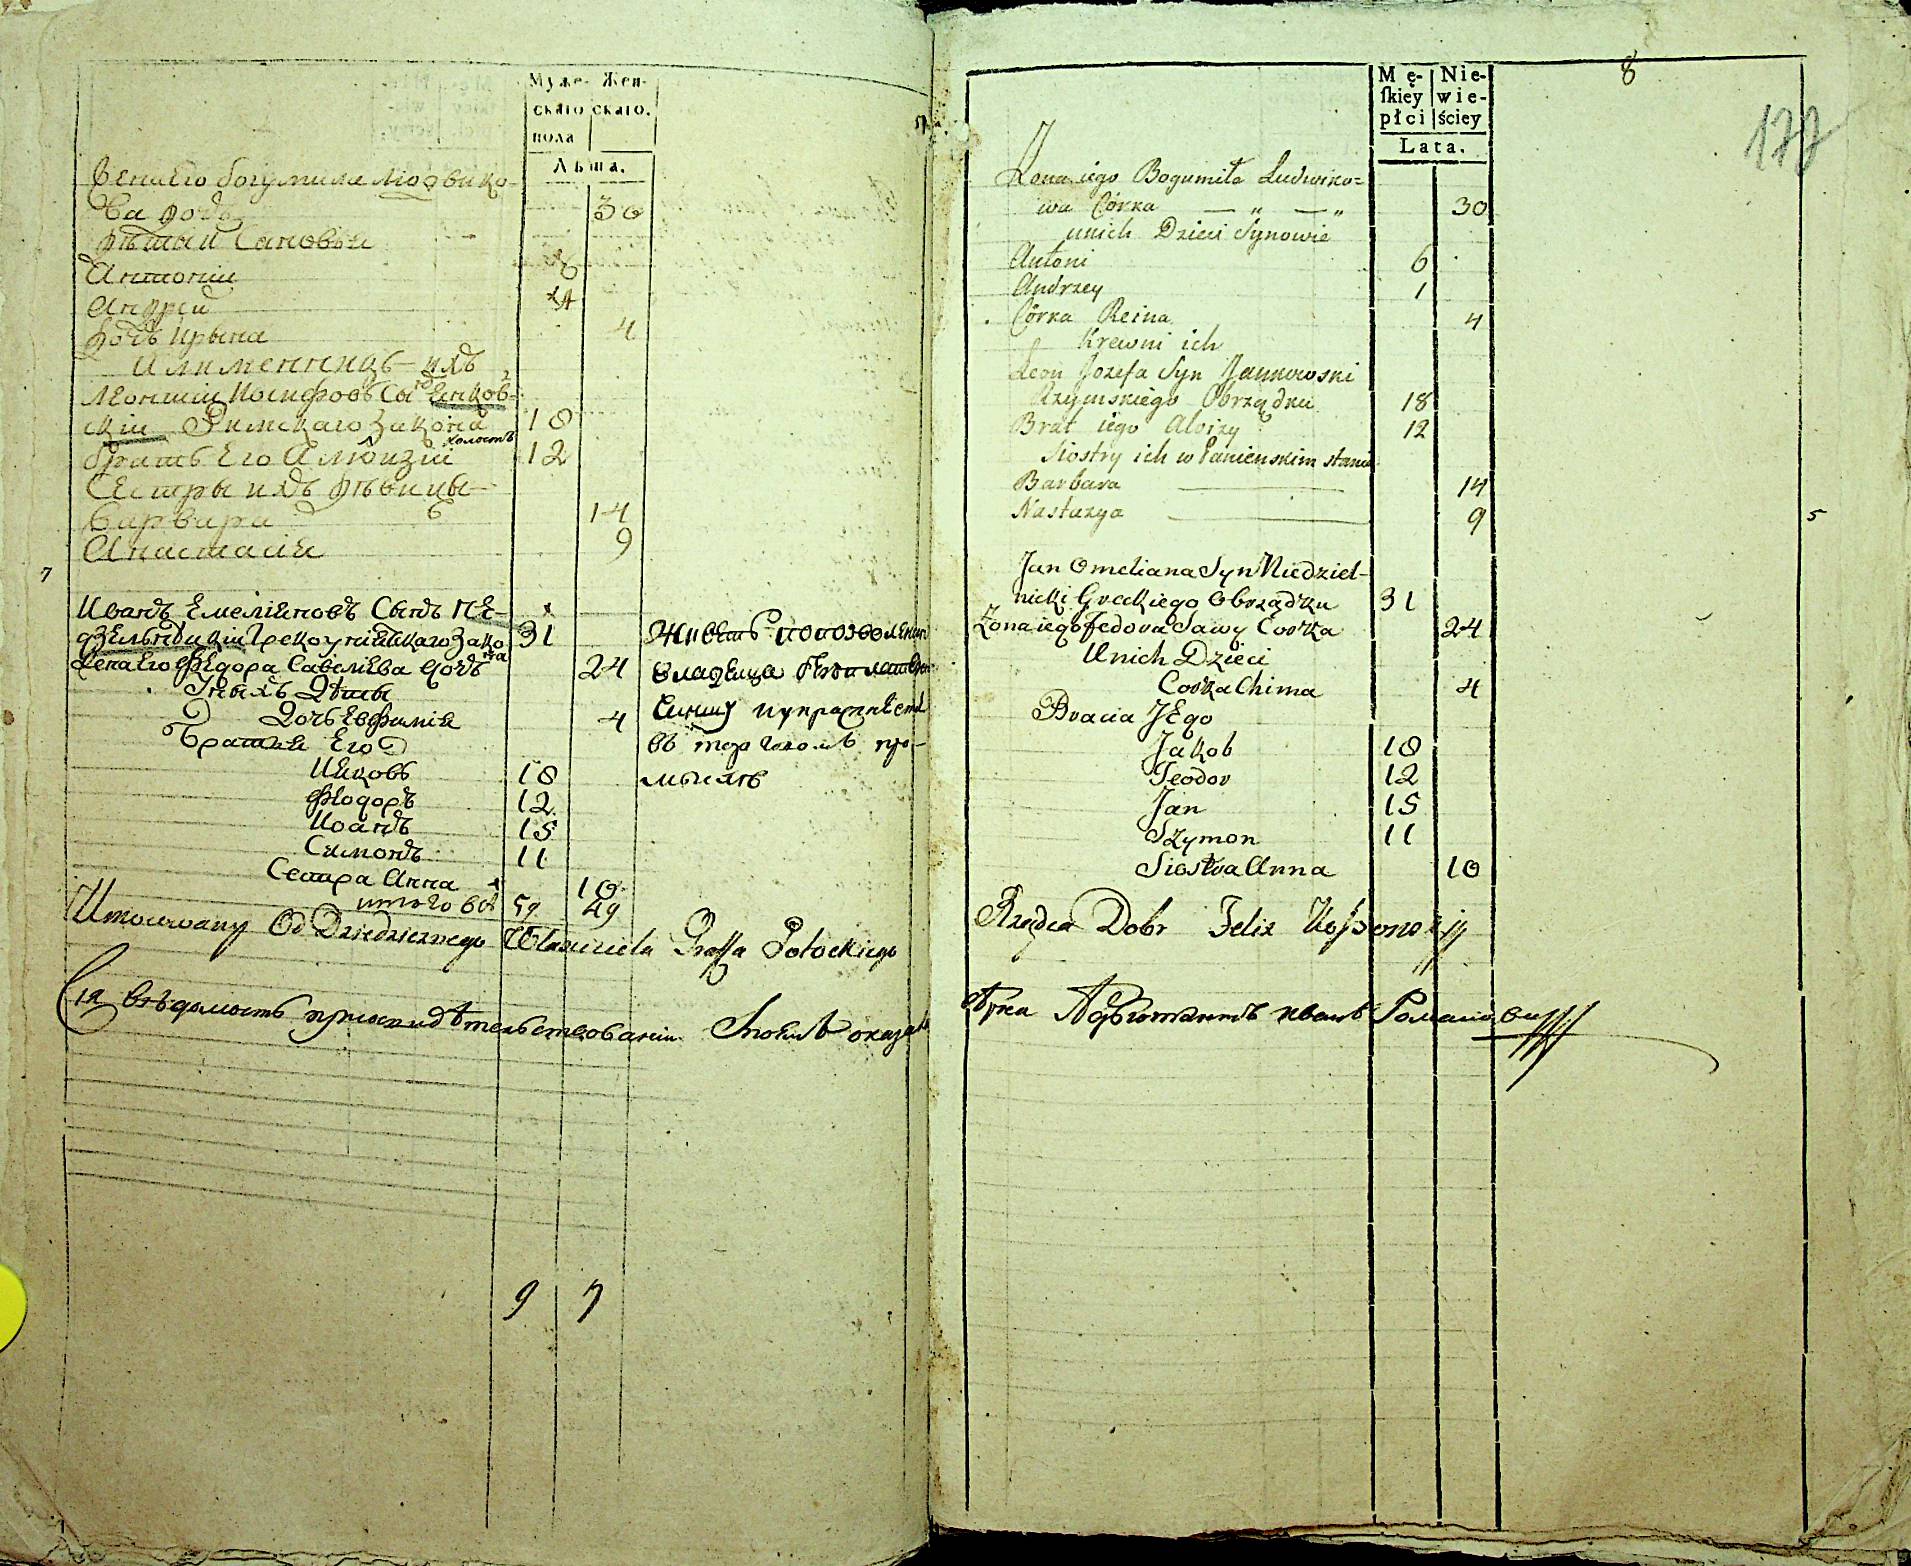 Муже- Жен-
скаго скаго.
пола
Лѣта.
Жена Его богумила Людвико-
ва дочь 30
дѣти и Сановья
Антоній 6
Андрей
дочь Ирына 4
ихъ
Леонтій Иосифовъ Сы Янков-
скій Римскаго Закона 18
холостъ
братъ Его Алоизій 12
Сестры ихъ дѣвицы
Барбара 14
Анастасія 9
7
Иванъ Емеліяновъ Сынъ Не-
дзельницкій Грекоуніятскаго Зако 31
на
Жена Его Федора Савелиева дочь 24
У ныхъ Дѣты
Дочь Евфимія 4
Братья Его
Яковъ 18
Феодоръ 12
Иоанъ 15
Симонъ 11
Сестра Анна 10
итого 59 49
Живетъ по позволению
владельца
въ
мыслѣ
Umocowany Od Dziedzicznego Właściciela Graffa Potockiego
Сія вѣдомость при освидѣтельствованіи
9 7
8
177
Mę- Nie-
ſkiey wie-
płci ściey
Lata.
Zona iego Bogumiła Ludwiko=
wa Córka — „ — „ 30
unich Dzieci Synowie
Antoni 6
Andrzey 1
Córka Reina 4
Krewni ich
Leon Jozefa Syn Jankowski
Rzymskiego Obrządku 18
Brat iego Aloizy 12
Siostry ich w Panienskim stanie
Barbara 14
Nastazya 9
5
Jan Omeliana Syn Niedziel-
nicki Greckiego Obrządku 31
Zona iego Fedora Sawy Corka 24
Unich Dzieci
Corka Chima 4
Bracia JEgo
Jakob 18
Teodor 12
Jan 15
Szymon 11
Siostra Anna 10
Rządca Dobr Felix
Адъютантъ иванъ